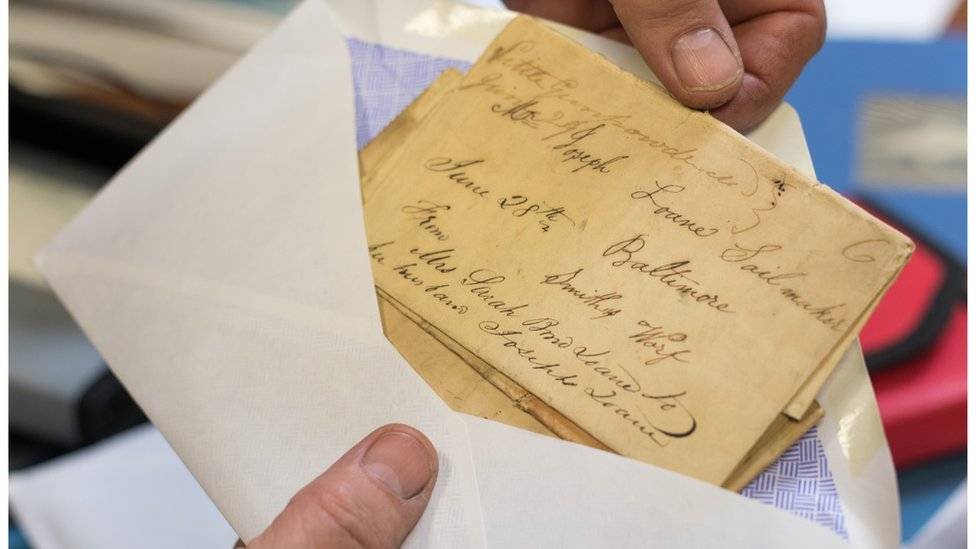 Little Gunpowder
June 29
Mr Joseph Loane Sailmaker
Baltimore
Smiths Warf
June 28th
From
Mrs Sarah Bond Loane to
her husband Joseph Loane
6